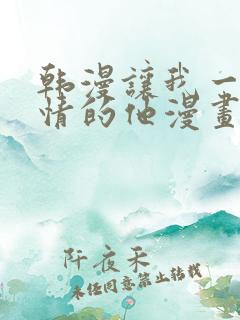 韩漫讓我一
情的他漫畫
阡夜禾
未经同意禁止转载